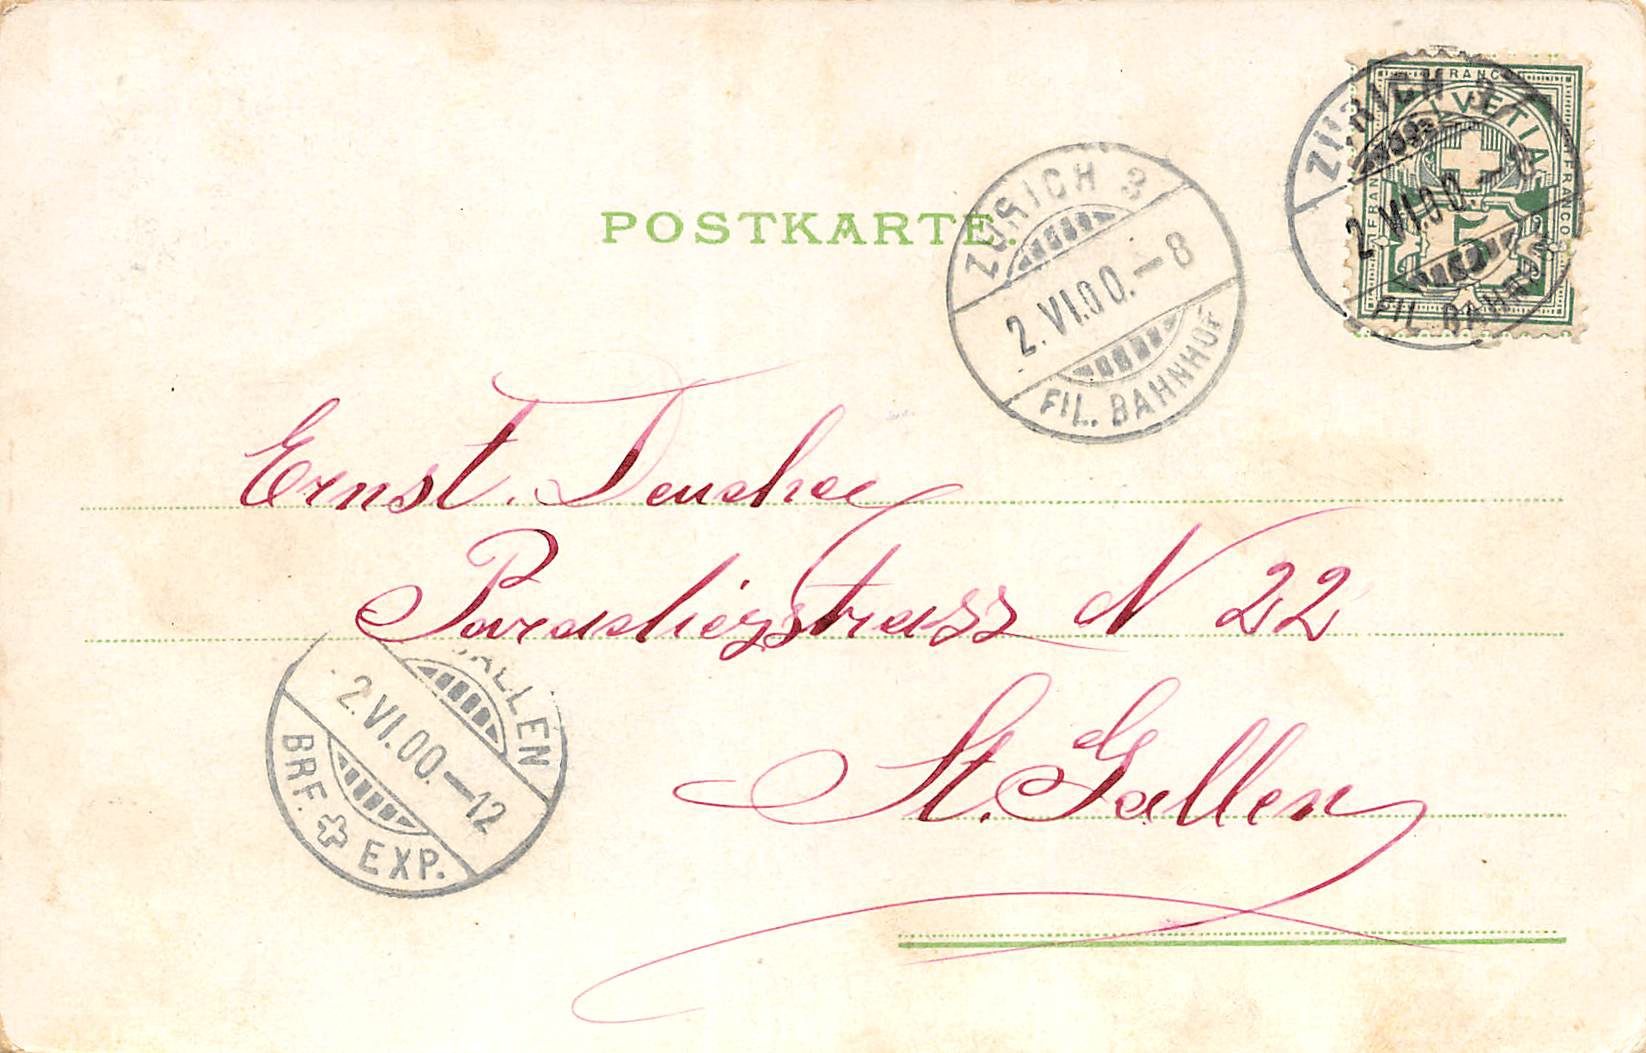 FRANCO
HELVETIA
FRANCO
FRANCO
5
ZÜRICH 3
2. VI.00.–8
FIL. BAHNHOF
ZÜRICH 3
2. VI.00.–8
FIL. BAHNHOF
POSTKARTE.
Ernst.
N 22
St. Gallen
GALLEN
2. VI. 00.–12
BRF. EXP.